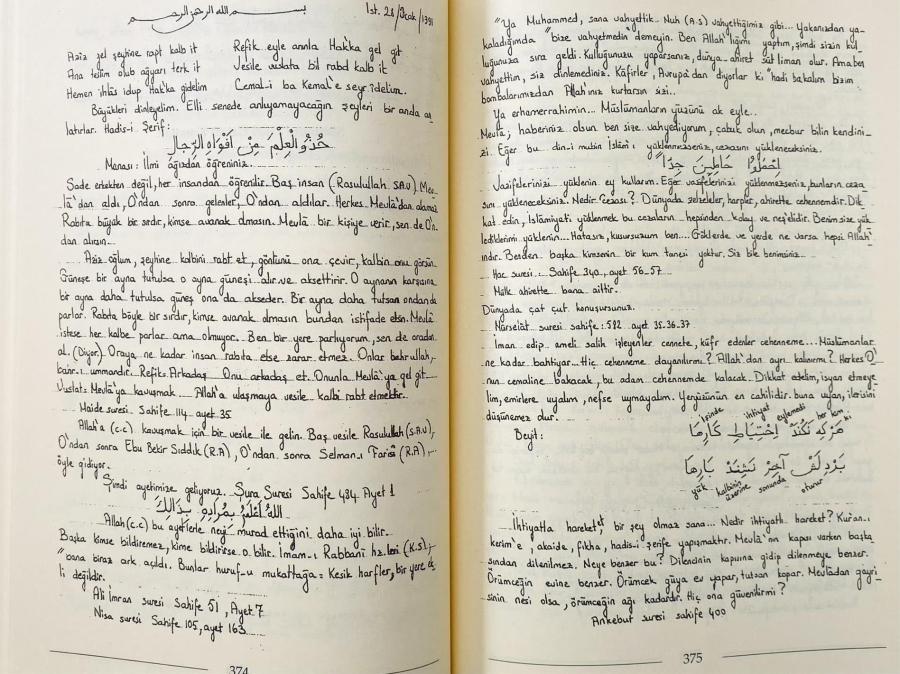 بسم الله الرحمن الرحيم
İst. 28/Ocak/1991
Aziz gel şeyhine rapt kalb it
Refik eyle anınla Hak'ka gel git
Ana teslim olub ağyarı terk it
Vesile vuslata bil rabd kalb it
Hemen ihlâs idup Hak'ka gidelim
Cemal-i ba Kemal'e seyr idelim.
Büyükleri dinleyelim. Elli senede anlıyamayacağın şeyleri bir anda an
latırlar. Hadis-i Şerif:
خُذُوا الْعِلْمَ مِنْ اَفْوَاهِ الرِّجَالِ
Manası: İlmi ağızdan öğreniniz.
Sade erkekten değil, her insandan öğrenilir. Baş insan (Rasulullah S.A.V) Mev
lâ'dan aldı, O'ndan sonra gelenler, O'ndan aldılar. Herkes Mevlâ'dan alamaz
Rabıta büyük bir sırdır, kimse avanak olmasın. Mevlâ bir kişiye verir, sen de O'n
dan alırsın.
Aziz oğlum, şeyhine kalbini rabt et, gönlünü ona çevir, kalbin onu görsün
Güneşe bir ayna tutulsa o ayna güneşi alır ve aksettirir. O aynanın karşısına
bir ayna daha tutulsa güneş ona da akseder. Bir ayna daha tutsan ondan da
parlar. Rabıta böyle bir sırdır, kimse avanak olmasın bundan istifade etsin. Mevlâ
istese her kalbe parlar ama olmuyor. Ben bir yere parlıyorum, sen de oradan
al. (Diyor). Oraya ne kadar insan rabıta etse zarar etmez. Onlar bahrullah,
bahr-ı ummandır. Refik: Arkadaş Onu arkadaş et. Onunla Mevlâ'ya gel git
Vuslat: Mevlâ'ya kavuşmak. Allah'a ulaşmaya vesile kalbi rabt etmektir.
Maide suresi Sahife 114 ayet 35
Allah'a (c.c) kavuşmak için bir vesile ile gelin. Baş vesile Rasulullah (S.A.V),
O'ndan sonra Ebu Bekir Sıddık (R.A), O'ndan sonra Selman-ı Farisi (R.A)
öyle gidiyor.
Şimdi ayetimize geliyoruz. Şura Suresi Sahife 484 Ayet 1
اَللهُ اَعْلَمُ بِمُرَادِهِ بِذَالِكَ
Allah (c.c) bu ayetlerle neyi murad ettiğini daha iyi bilir.
Başka kimse bildiremez, kime bildiritse o bilir. İmam-ı Rabbanî hz.leri (K.S),
"bana biraz ark açıldı. Bunlar huruf-u mukattağa = Kesik harfler, bir yere ek
li değildir.
Ali İmran suresi Sahife 51, Ayet 7
Nisa suresi Sahife 105, ayet 163
374
"Ya Muhammed, sana vahyettik. Nuh (A.S) vahyettiğimiz gibi... Yakanızdan ya-
kaladığımda "bize vahyetmedin demeyin. Ben Allah'lığımı yaptım, şimdi sizin kul
luğunuza sıra geldi. Kulluğunuzu yaparsanız, dünya-ahiret süt liman olur. Ama ben
vahyettim, siz dinlemediniz. Kâfirler, Avrupa'dan diyorlar ki "hadi bakalım bizim
bombalarımızdan Allah'ınız kurtarsın sizi..
Ya erhamerrahimin... Müslümanların yüzünü ak eyle..
Mevlâ; haberiniz olsun ben size vahyediyorum, çabuk olun, mecbur bilin kendini-
zi. Eğer bu din-i mubin İslâm'ı yüklenmezseniz, cezasını yükleneceksiniz.
اِحْمِلُوا حَامِلِينَ جِدًّا
Vazifelerinizi yüklenin ey kullarım. Eğer vazifelerinizi yüklenmezseniz, bunların ceza
sını yükleneceksiniz. Nedir cezası? Dünyada zelzeleler, harpler, ahirette cehennemdir. Dik
kat edin, İslâmiyeti yüklenmek bu cezaların hepsinden kolay ve neş'elidir. Benim size yük
lediklerimi yüklenin... Hatasız, kusursuzum ben... Göklerde ve yerde ne varsa hepsi Allah'
ındır. Benden başka kimsenin bir kum tanesi yoktur. Siz bile benimsiniz.
Hac suresi: Sahife 340, ayet 56-57
Mülk ahirette bana aittir.
Dünyada çat çut konuşursunuz.
Mürselât suresi sahife: 582 ayet 35.36.37
İman edip, ameli salih işleyenler cennete, küfr edenler cehenneme... Müslümanlar
ne kadar bahtiyar. Hiç cehenneme dayanılırmı? Allah'dan ayrı kalınırmı? Herkes O'
nun cemaline bakacak, bu adam cehennemde kalacak. Dikkat edelim, isyan etmeye
lim, emirlere uyalım, nefse uymayalım. Yeryüzünün en cahilidir. buna uyan, ilerisini
düşünemez olur.
Beyit:
işinde ihtiyat eylemedi her kim ki
هَرْكِه نَكُنَدْ اِحْتِيَاطِ كَارِهَا
بَرْ دِلَشْ آخِرْ نَشِينَدْ بَارِهَا
yük kalbinin üzerine sonunda oturur
İhtiyatla hareket et bir şey olmaz sana... Nedir ihtiyatlı hareket? Kur'an-ı
kerim'e, akaide, fıkha, hadis-i şerife yapışmaktır. Mevlâ'nın kapısı varken başka
sından dilenilmez. Neye benzer bu? Dilencinin kapısına gidip dilenmeye benzer.
Örümceğin evine benzer. Örümcek güya ev yapar, tutsan kopar. Mevlâdan gayri
sinin nesi olsa, örümceğin ağı kadardır. Hiç ona güvenilirmi?
Ankebut suresi sahife 400
375